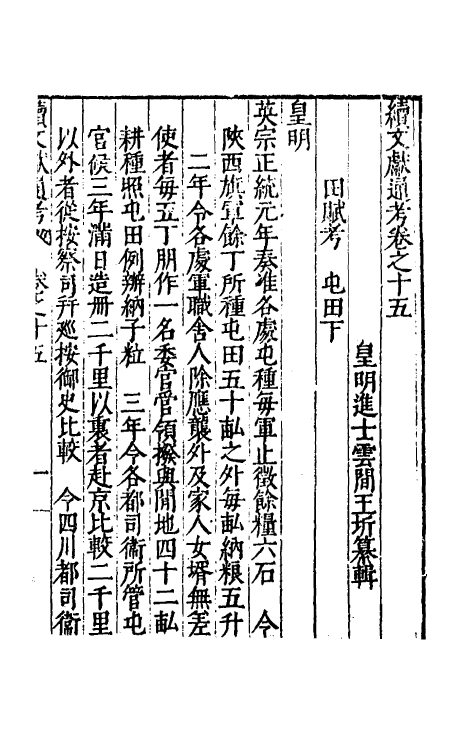 續文獻通考卷之十五
皇明進士雲間王圻纂輯
田賦考　屯田下
皇明
英宗正統元年奏准各處屯種每軍止徵餘糧六石　令
陝西旗軍餘丁所種屯田五十畝之外每畝納粮五升
二年令各處軍職舍人除應襲外及家人女壻無差
使者每五丁朋作一名委官管領撥與閒地四十二畝
耕種照屯田例辦納子粒　三年令各都司衞所管屯
官候三年滿日造冊二千里以裏者赴京比較二千里
以外者從按察司并廵按御史比較　令四川都司衞
續文獻通考　卷之十五　一